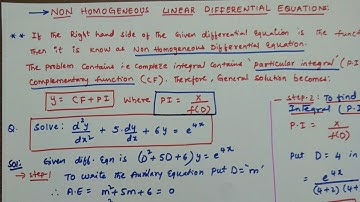 → NON HOMOGENEOUS LINEAR DIFFERENTIAL EQUATIONS.
** If the Right hand side of the Given differential Equation is the func
then it is known as Non Homogeneous Differential Equation.
The problem Contains i.e Complete integral Contains 'particular integral' (P.I
Complementary function (CF). Therefore, General solution becomes:
y = CF + PI Where PI = X/f(D)
Q. Solve: d²y/dx² + 5·dy/dx + 6y = e^4x
Sol: Given diff. Eqn is (D²+5D+6)y = e^4x
→ step-1 To write the Auxilary Equation put D='m'
∴ A.E = m²+5m+6 = 0
→ step-2: To find
Integral (P.I
P.I = X/f(D)
Put D = 4 in
= e^4x/(4+2)(4+